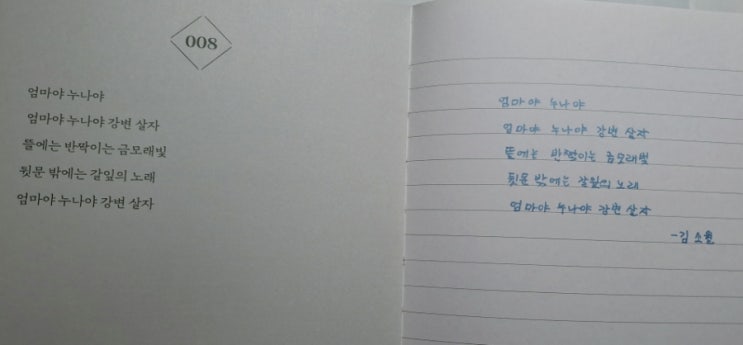 008
엄마야 누나야
엄마야 누나야 강변 살자
뜰에는 반짝이는 금모래빛
뒷문 밖에는 갈잎의 노래
엄마야 누나야 강변 살자
엄마야 누나야
엄마야 누나야 강변 살자
뜰에는 반짝이는 금모래빛
뒷문 밖에는 갈잎의 노래
엄마야 누나야 강변 살자
-김소월